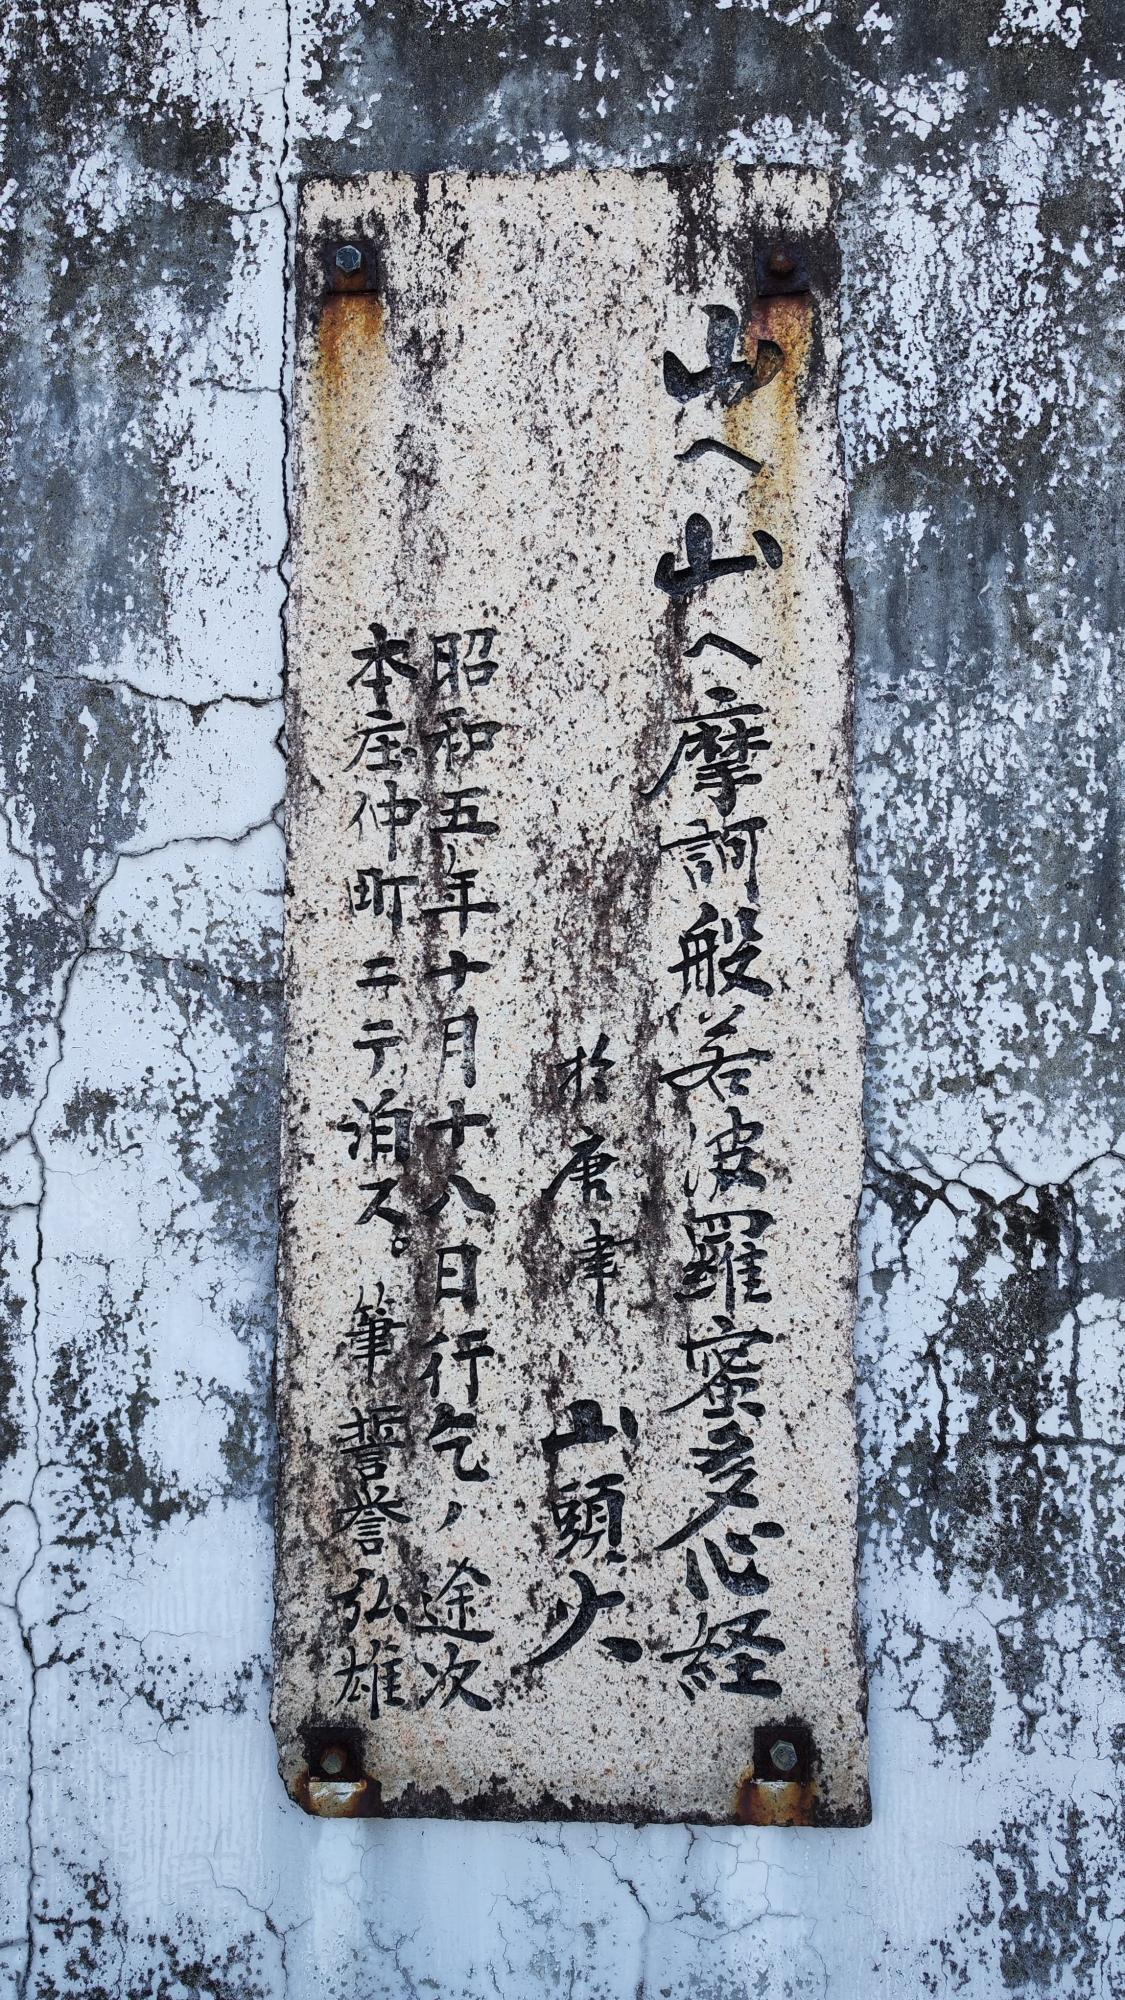 山へ山へ摩訶般若波羅蜜多心経
於唐津 山頭火
昭和五年十月十八日行乞ノ途次
本庄仲町ニテ泊ス。筆 誓誉弘雄